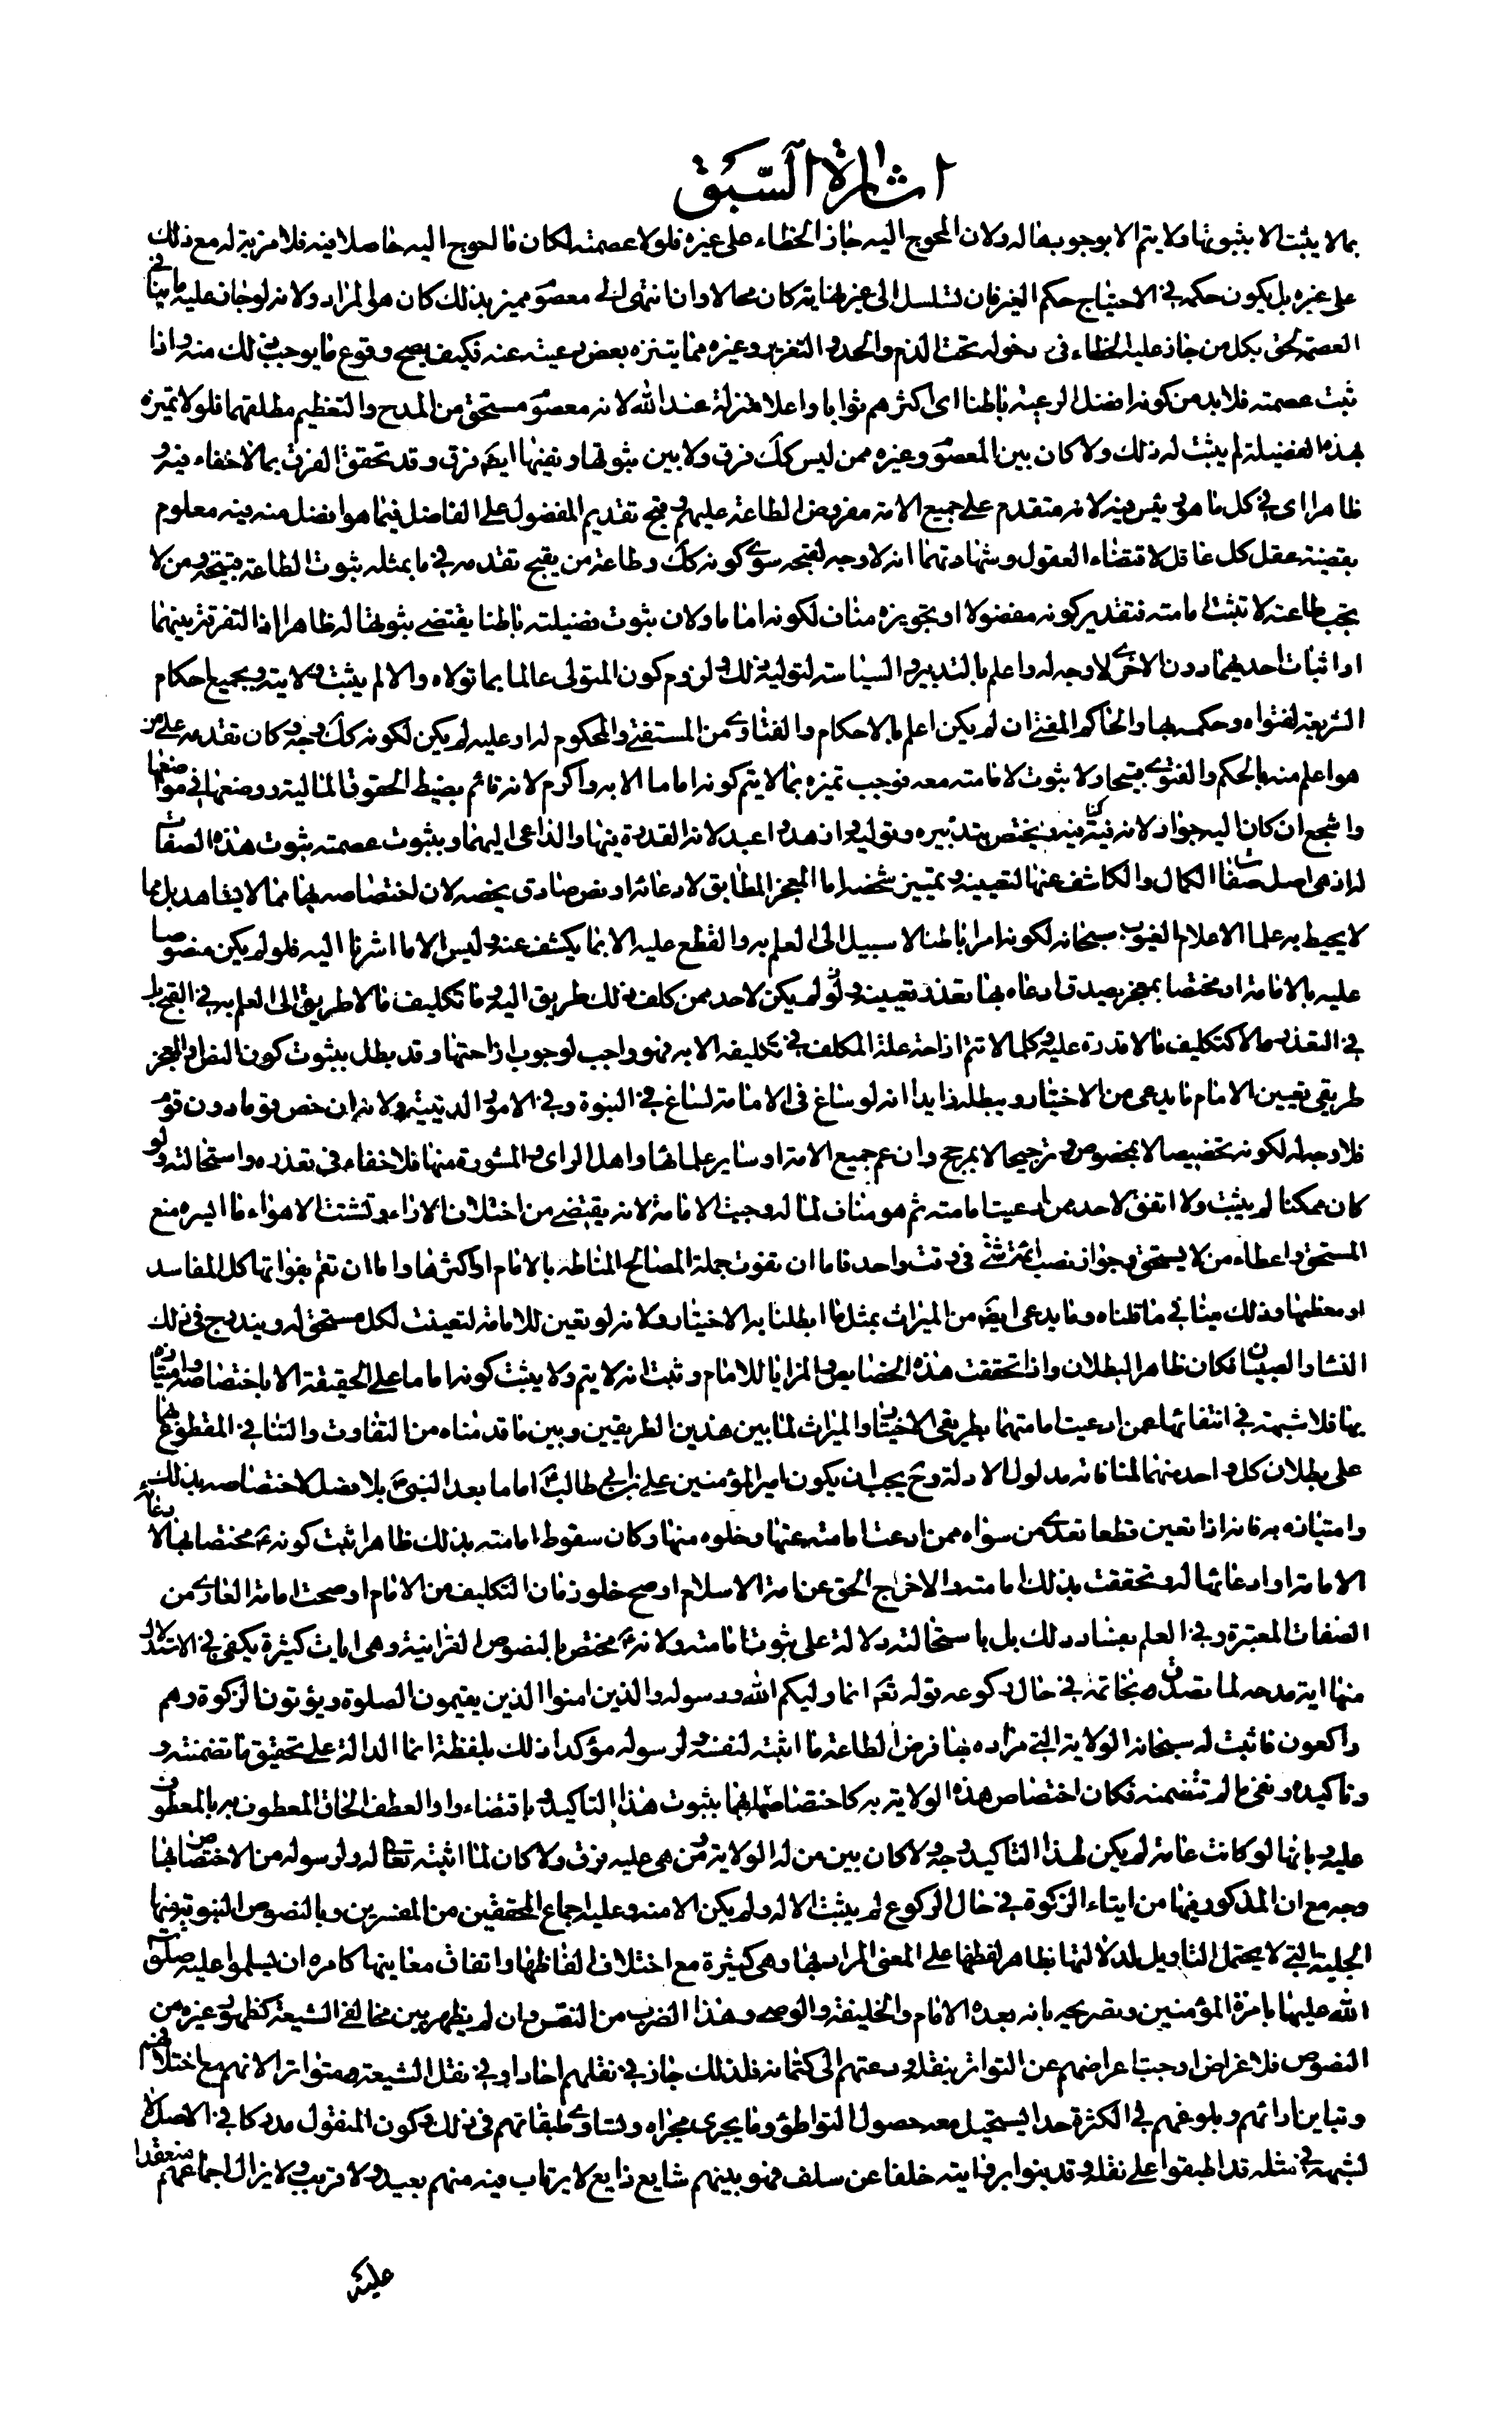 اشارة السبق
بما لا يثبت الا بثبوتها ولا يتم الا بوجوبها له ولان المحوج اليه جاز الخطاء على غيره فلولا عصمته لكان ما احوج اليه حاصلا فيه فلا مزية له مع ذلك
على غيره بل يكون حكمه في الاحتياج حكم الغير فان تسلسل الى غير نهاية كان محالا وان انتهى الى معصوم مميز بذلك كان هو المراد ولانه لو جاز عليه ما ينافي
العصمة لحق بكل من جاز عليه الخطاء في دخوله تحت الذم والحد والتعزير وغيره مما يتنزه بعض رعيته عنه فكيف يصح وقوع ما يوجب ذلك منه واذا
ثبت عصمته فلا بد من كونه افضل الرعية باطنا اى اكثرهم ثوابا واعلا منزلة عند الله لانه معصوم مستحق من المدح والتعظيم مطلقهما فلولا تميزه
بهذه الفضيلة لم يثبت له ذلك ولا كان بين المعصوم وغيره ممن ليس كك فرق ولا بين ثبوتها ونفيها ايضا فرق وقد تحقق الفرق بما لا خفاء فيه و
ظاهرا اى في كل ما هو رئيس فيه لانه متقدم على جميع الامة مفروض الطاعة عليهم وقبح تقديم المفضول على الفاضل فيما هو افضل منه فيه معلوم
بقضية عقل كل عاقل لاقتضاء العقول وشهادتها انه لا وجه لقبحه سوى كونه كك وطاعة من يقبح تقدمه في ما بمثله ثبوت الطاعة قبيحة ومن لا
تجب طاعته لا تثبت امامته فتقدير كونه مفضولا او تجويزه مناف لكونه اماما ولان ثبوت فضيلته باطنا يقتضى ثبوتها له ظاهرا اذ التفرقة بينهما
او اثبات احديهما دون الاخرى لا وجه له واعلم بالتدبير والسياسة لتوليه ذلك ولزوم كون المتولى عالما بما تولاه والا لم يثبت ولايته وبجميع احكام
الشريعة لفتواه وحكمه بها والحاكم المفتى ان لم يكن اعلم بالاحكام والفتاوى من المستفتى والمحكوم له او عليه لم يكن لكونه كك وجه وكان تقدمه على من
هو اعلم منه بالحكم والفتوى قبيحا ولا ثبوت لامامته معه فوجب تميزه بما لا يتم كونه اماما الا به واكرم لانه قائم بضبط الحقوق المالية ووضعها في مواضعها
واشجع ان كان اليه جواز لانه فئة فيه ويختص بتدبيره وتوليه وازهد واعبد لانه القدوة فيها والداعى اليهما وبثبوت عصمته ثبوت هذه الصفات
له اذ هى اصل صفات الكمال والكاشف عنها لتعيينه وتمييز شخصه اما المعجز المطابق لادعائه او نص صادق يخصه لان اختصاصه بها مما لا يشاهد بل مما
لا يحيط به علما الا علام الغيوب سبحانه لكونه امرا باطنا لا سبيل الى العلم به والقطع عليه الا بما يكشف عنه وليس الا ما اشرنا اليه فلو لم يكن منصوصا
عليه بالامامة او مختصا بمعجز يصدق ادعاه بها تعذر تعيينه ولو لم يكن لاحد ممن كلف ذلك طريق اليه وما تكليف ما لا طريق الى العلم به في القبح
في التعذر الا كتكليف ما لا قدرة عليه وكلما لا تتم ازاحة علة المكلف في تكليفه الا به فهو واجب لوجوب ازاحتها وقد بطل بثبوت كون النص او المعجز
طريقى تعيين الامام ما يدعى من الاختيار ويبطله زايدا انه لو ساغ في الامامة لساغ في النبوة وفي الامور الدينية ولانه ان خص قوما دون قوم
فلا وجه له لكونه تخصيصا لا بمخصوص وترجيحا لا بمرجح وان عم جميع الامة او ساير علمائها واهل الراى والمشورة منها فلا خفاء في تعذره واستحالته ولو
كان ممكنا لم يثبت ولا اتفق لاحد ممن ادعيت امامته ثم هو مناف لما له وجبت الامامة لانه يقتضى من اختلاف الاراء وتشتت الاهواء ما ايسره منع
المستحق واعطاء من لا يستحق وجواز نصب ائمة شتى في وقت واحد فاما ان تفوت جملة المصالح المناطة بالامام او اكثرها واما ان تعم بفواتها كل المفاسد
او معظمها وذلك مناف ما قلناه وما يدعى ايضا من الميراث بمثل ما ابطلنا به الاختيار ولانه لو تعين للامامة لتعينت لكل مستحق له ويندرج في ذلك
النساء والصبيان فكان ظاهر البطلان واذا تحققت هذه الخصايص والمزايا للامام وثبت انه لا يتم ولا يثبت كونه اماما على الحقيقة الا باختصاصه وامتيازه
بها فلا شبهة في انتفائها عمن ادعيت امامتهما بطريقى الاختيار والميراث لما بين هذين الطريقين وبين ما قدمناه من التفاوت والتنافي المقطوع بهما
على بطلان كل واحد منهما لمنافاته مدلول الادلة وح يجب ان يكون امير المؤمنين على بن ابي طالب ع اماما بعد النبي ص بلا فصل لاختصاصه بذلك
وامتيازه به فانه اذا تعين قطعا تعدى من سواه ممن ادعيت امامته عنها وخلوه منها وكان سقوط امامته بذلك ظاهرا ثبت كونه ع مختصا بها لادعائه
الامامة او ادعائها له وتحققت بذلك امامته والا خرج الحق عن امة الاسلام او صح خلو زمان التكليف من الامام او صحت امامة العارى من
الصفات المعتبرة وفي العلم بفساد ذلك بل باستحالته دلالة على ثبوت امامته ولانه ع مختص بالنصوص القرانية وهى ايات كثيرة يكفى في الاستدلال
منها اية مدحه لما تصدق بخاتمه في حال ركوعه قوله تعم انما وليكم الله ورسوله والذين امنوا الذين يقيمون الصلوة ويؤتون الزكوة وهم
راكعون فاثبت له سبحانه الولاية التى مراده بها فرض الطاعة ما اثبته لنفسه ولرسوله مؤكدا ذلك بلفظة انما الدالة على تحقيق ما تضمنته و
وتاكيده ونفى ما لم تتضمنه فكان اختصاص هذه الولاية به كاختصاصهما بها بثبوت هذا التاكيد وباقتضاء واو العطف الحاق المعطوف به بالمعطوف
عليه وبانها لو كانت عامة لم يكن لهذا التاكيد وجه ولا كان بين من له الولاية ومن هى عليه فرق ولا كان لما اثبته تعالى له ولرسوله من الاختصاص بها
وجه مع ان المذكور فيها من ايتاء الزكوة في حال الركوع لم يثبت الا له ولم يكن الا منه وعليه اجماع المحققين من المفسرين وبالنصوص النبوية فمنها
الجلية التى لا يحتمل التاويل لدلالتها بظاهر لفظها على المعنى المراد بها وهى كثيرة مع اختلاف الفاظها واتفاق معانيها كامره ان يسلموا عليه صلوات
الله عليهما بامرة المؤمنين وتصريحه بانه بعده الامام والخليفة والوصى وهذا الضرب من النص وان لم يظهر بين مخالفى الشيعة كظهور غيره من
النصوص فلاغراض اوجبت اعراضهم عن التواتر بنقله ودعتهم الى كتمانه فلذلك جاز في نقلهم احادا وفي نقل الشيعة متواترا لانهم مع اختلافهم
وتباين ارائهم وبلوغهم في الكثرة حدا يستحيل معه حصول التواطؤ وما يجرى مجراه وتساوى طبقاتهم في ذلك وكون المنقول مدركا في الاصل لا
لشبهة في مثله قد اطبقوا على نقله وقد ينوا بروايته خلفا عن سلف فهو بينهم شايع ذايع لا يرتاب فيه منهم بعيد ولا قريب ولا يزال اجماعهم منعقدا
عليه